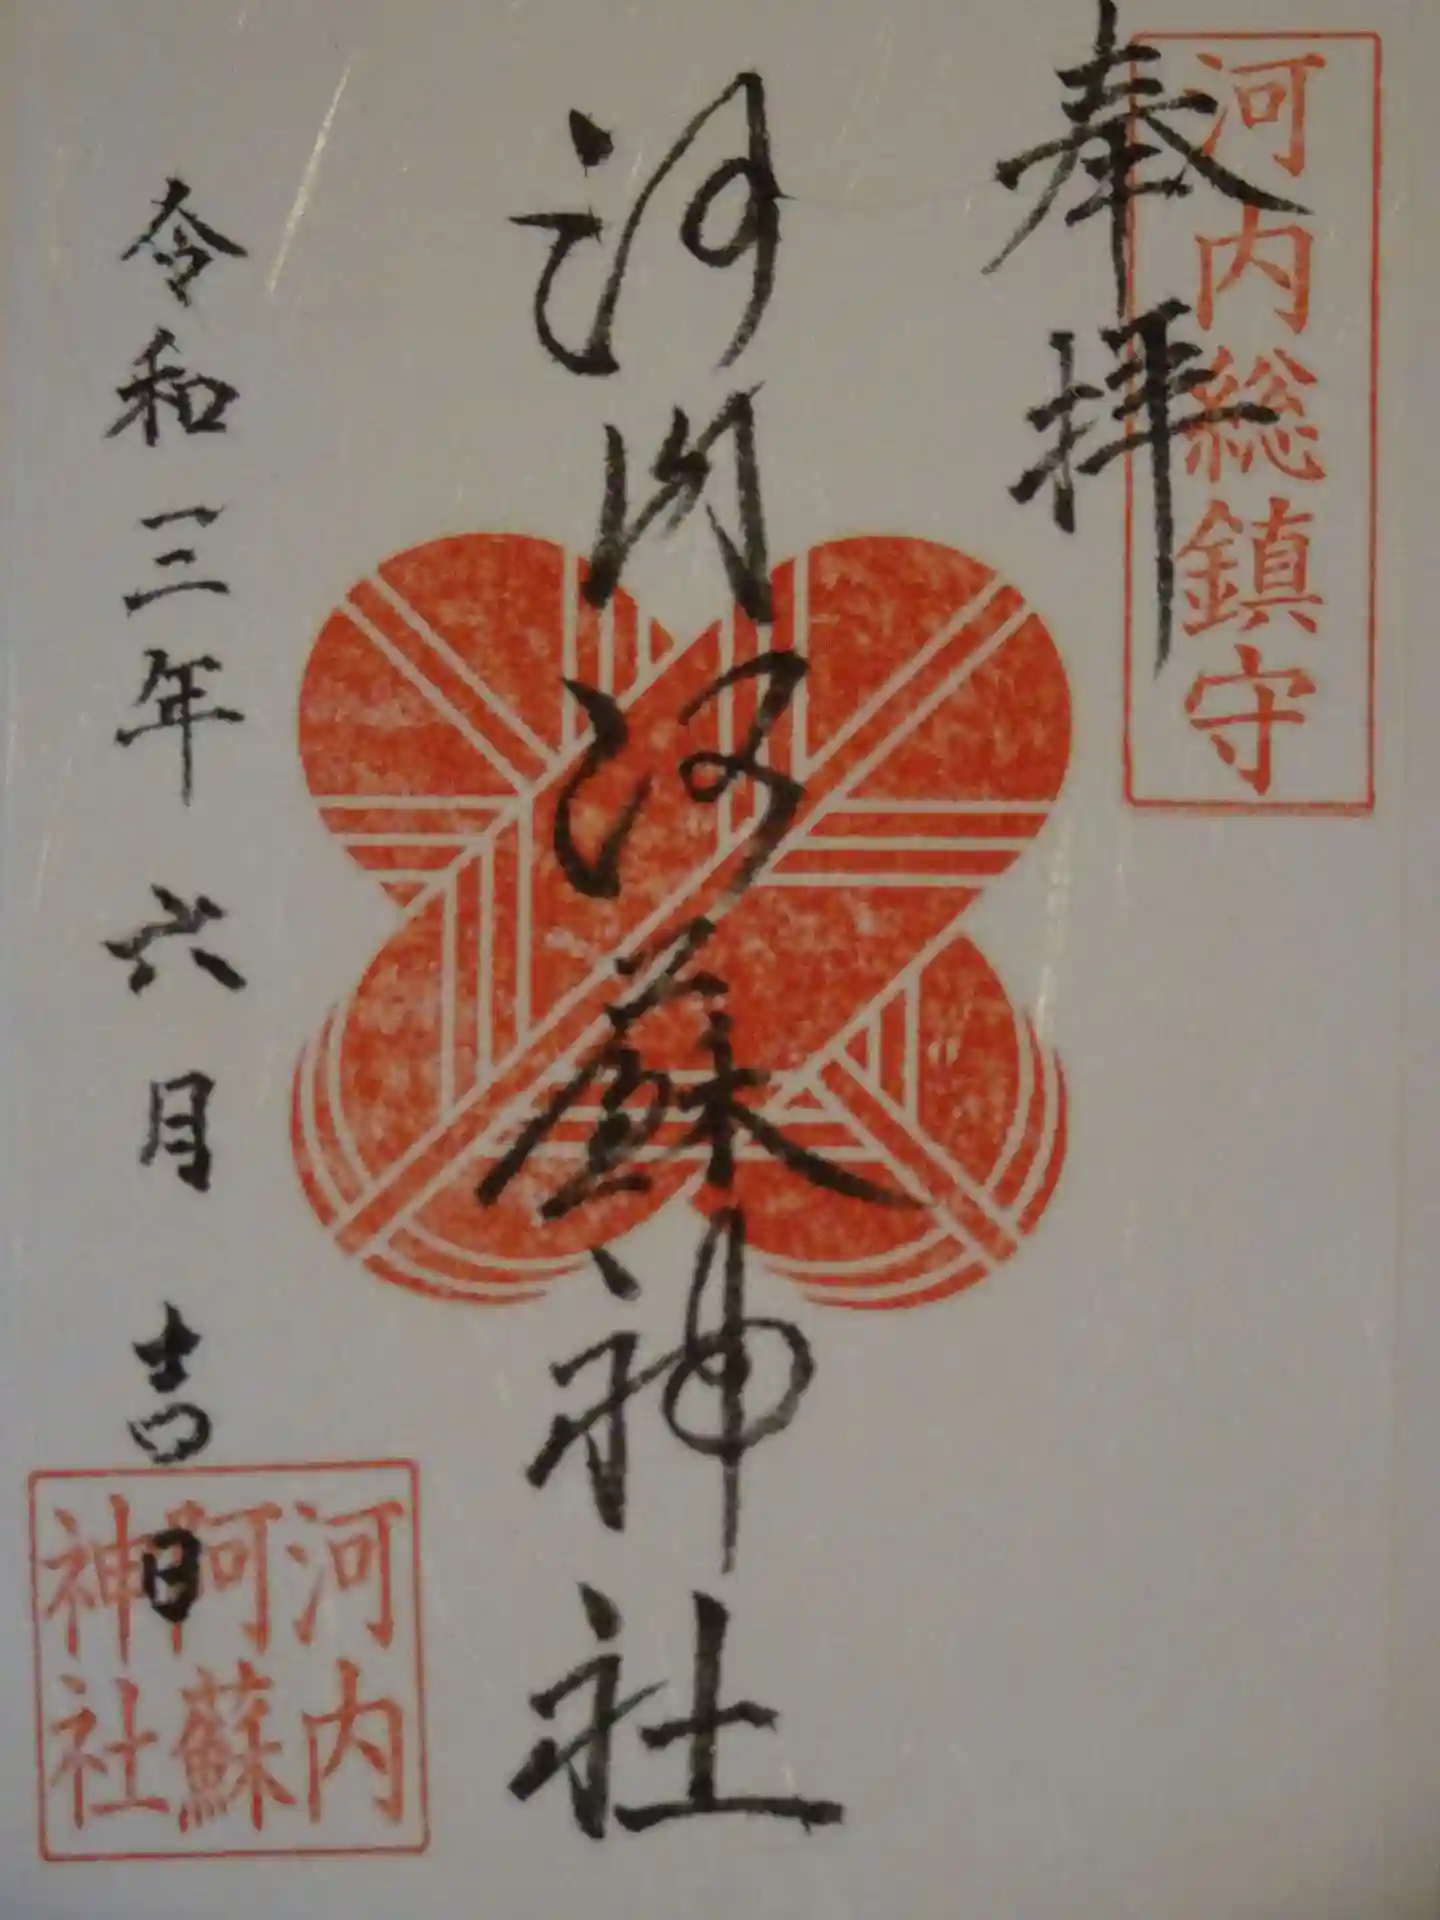 奉拝
河内総鎮守
河内阿蘇神社
令和三年六月吉日
河内
阿蘇
神社